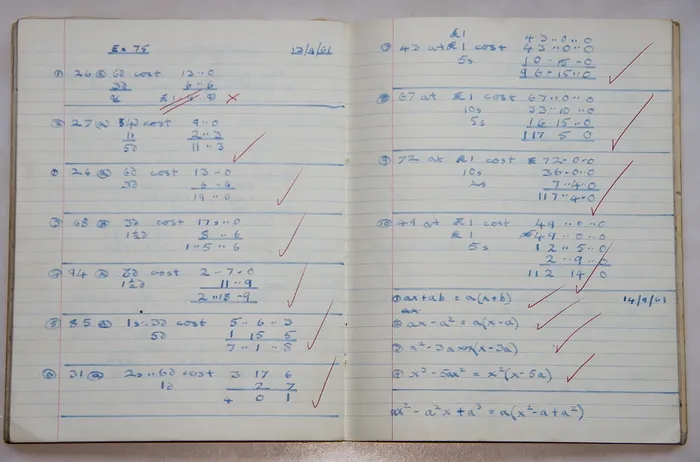 Ex 75 12/9/61
① 26 @ 6d cost 13..0
3d 6..6
② 27 @ 4d cost 9..0
1d 2..3
5d 11..3
① 26 @ 6d cost 13..0
3d 6..6
19..6
③ 68 @ 3d cost 17s..0
1½d 8..6
1..5..6
④ 94 @ 6d cost 2..7..0
1½d 11..9
2..18..9
⑤ 85 @ 1s..3d cost 5..6..3
5d 1 15 5
7..1..8
⑥ 31 @ 2s..6d cost 3 17 6
1d 2 7
4 0 1
£1 43..0..0
⑦ 43 at £1 cost 43..0..0
5s 10..15..0
96..15..0
⑧ 67 at £1 cost 67..0..0
10s 33..10..0
5s 16 15..0
117 5 0
⑨ 72 at £1 cost £72..0..0
10s 36..0..0
2s 7..4..0
117..4..0
⑩ 49 at £1 cost 49..0..0
£1 49..0..0
5s 12..5..0
2..9..0
112 14 0
① ax+ab = a(x+b) 14/9/61
② ax-a² = a(x-a)
③ x²-3ax=x(x-3a)
④ x³-5ax² = x²(x-5a)
ax²-a²x+a³ = a(x²-a+a²)